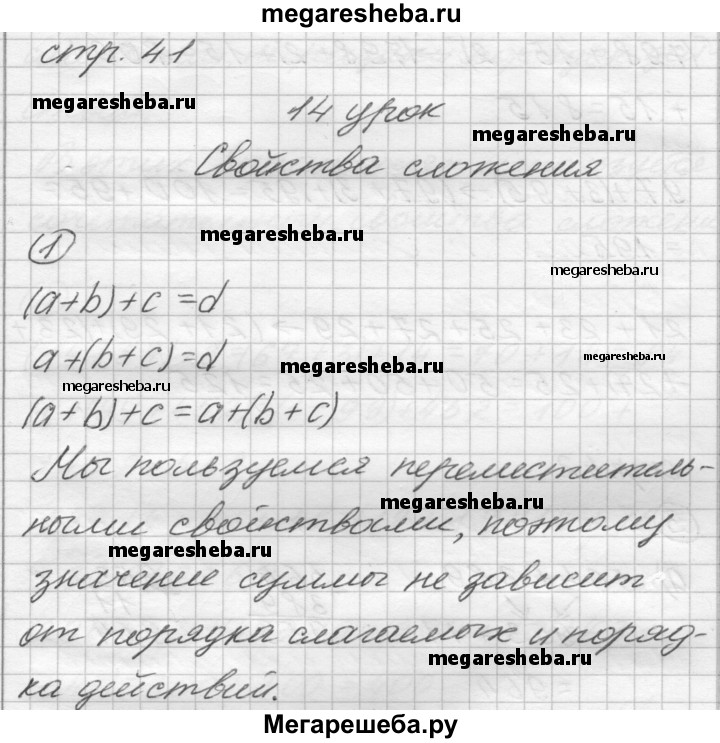 megaresheba.ru
стр. 41
megaresheba.ru
14 урок
megaresheba.ru
Свойства сложения
megaresheba.ru
1
megaresheba.ru
(a+b)+c=d
a+(b+c)=d
megaresheba.ru
megaresheba.ru
megaresheba.ru
(a+b)+c=a+(b+c)
Мы пользуемся переместитель-
megaresheba.ru
ными свойствами, поэтому
megaresheba.ru
значение суммы не зависит
от порядка слагаемых и поряд-
megaresheba.ru
ка действий.
Мегарешеба.ру